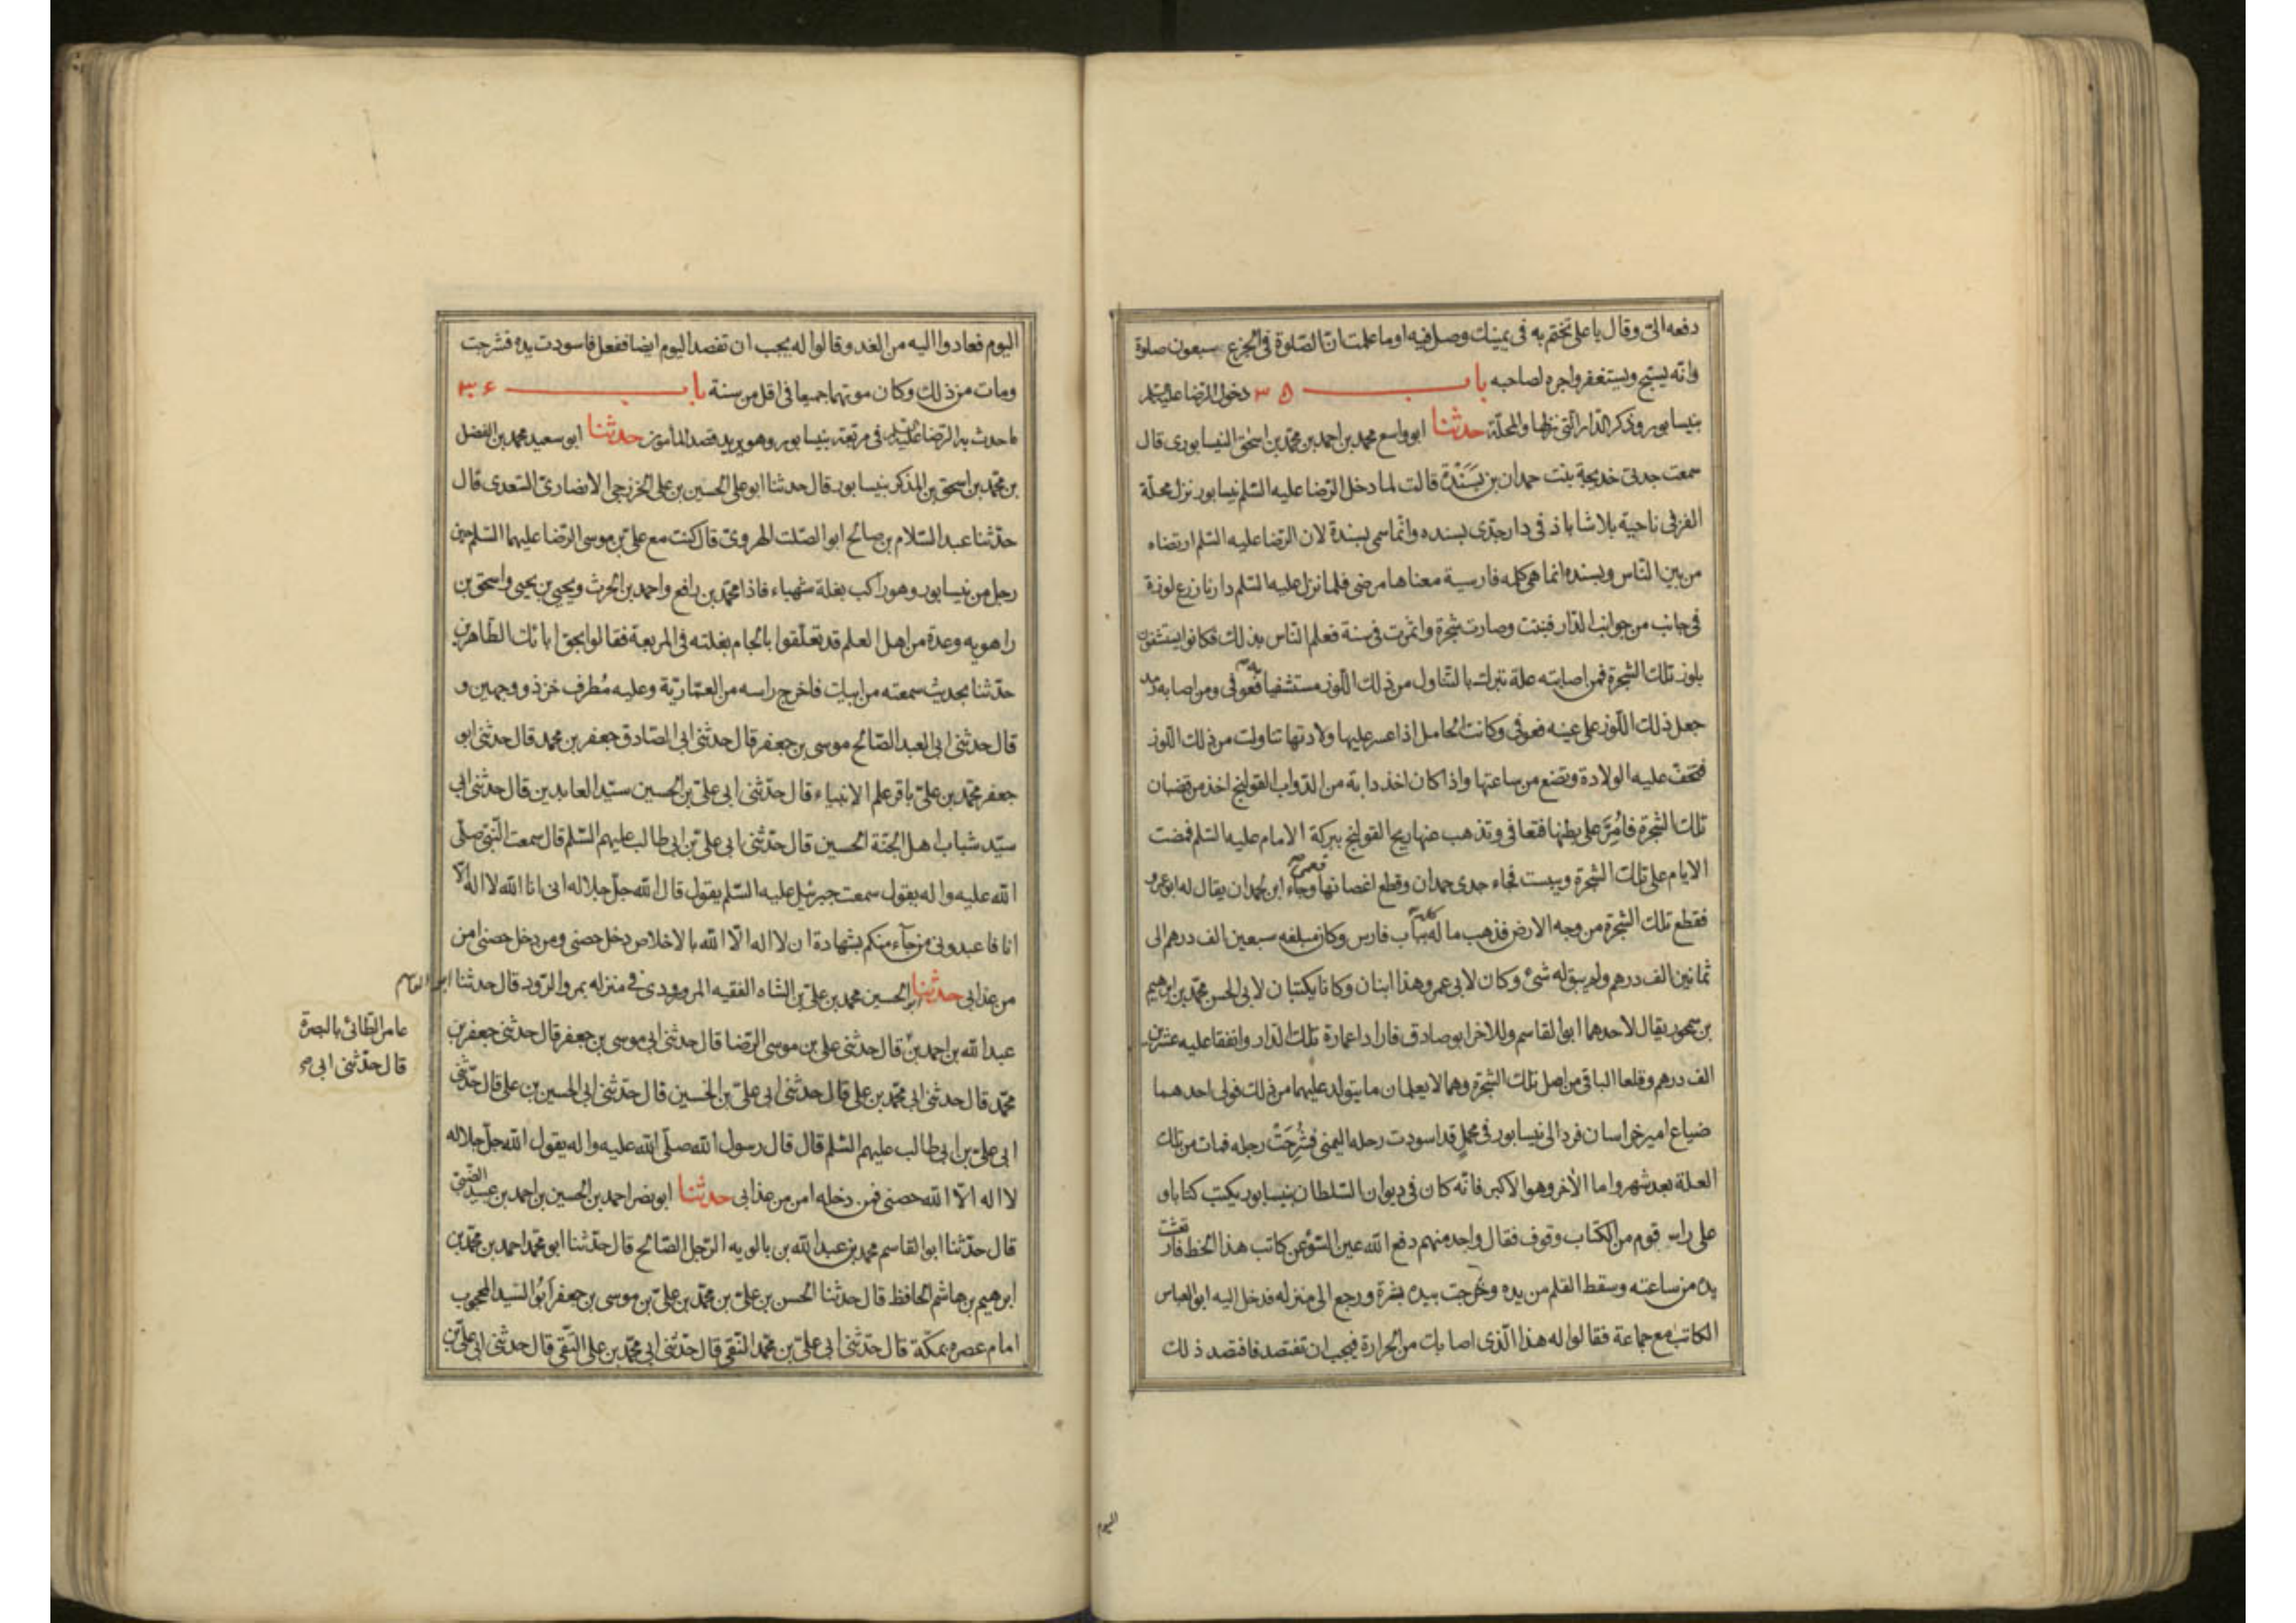 دفعه الىّ وقال يا على تختم به فى يمينك وصل فيه اوما علمت انّ الصّلوة فى الجزع سبعون صلوة
وانّه يسبّح ويستغفر واجره لصاحبه باب ٣٥ دخول الرّضا عليه السّلم
بنيسابور وذكر الدّار الّتى نزلها والمحلّة حدثنا ابو واسع محمد بن احمد بن محمّد بن اسحٰق النيسابورى قال
سمعت جدتى خديجة بنت حمدان بن بَسَنْدَة قالت لما دخل الرّضا عليه السّلم نيسابور نزل محلّة
الغزفى ناحية بلاشاباذ فى دار جدّى بسنده وانّما سمى بسندة لان الرّضا عليه السّلم ارتضاه
من بين النّاس وبسنده انما هى كله فارسية معناها مرضى فلما نزل عليه السّلم دارنا زرع لوزة
فى جانب من جوانب الدّار فنبتت وصارت شجرة واثمرت فى سنة فعلم النّاس بذلك فكانوا يستشفون
بلوز تلك الشجرة فمن اصابته علة تبرك بالتّناول من ذلك اللّوز مستشفيا به فعوفى ومن اصابه رمد
جعل ذلك اللّوز على عينه فعوفى وكانت الحامل اذا عسر عليها ولادتها تناولت من ذلك اللّوز
فتخفّ عليه الولادة وتضع من ساعتها واذا كان اخذ دابة من الدّواب القولنج اخذ من قضبان
تلك الشجرة فأُمِرَّ على بطنها فتعافى وتذهب عنها ريح القولنج ببركة الامام عليه السّلم فمضت
الايام على تلك الشجرة ويبست فجاء جدى حمدان وقطع اغصانها فعمى وجاء ابن لحمدان يقال له ابو عمرو
فقطع تلك الشجرة من وجه الارض فذهب ماله كله بباب فارس وكان مبلغه سبعين الف درهم الى
ثمانين الف درهم ولم يبق له شئ وكان لابى عمرو هذا ابنان وكانا يكتبان لابى الحسن محمّد بن ابرهيم
بن سمجور يقال لاحدهما ابو القاسم وللاخر ابو صادق فارادا عمارة تلك الدّار وانفقا عليه عشرين
الف درهم وقلعا الباقى من اصل تلك الشجرة وهما لا يعلمان ما يتولد عليهما من ذلك فولى احدهما
ضياع امير خراسان فرد الى نيسابور فى محمل قد اسودت رجله اليمنى فشُرِحَتْ رجله فمات من تلك
العلة بعد شهر واما الأخر وهو الاكبر فانّه كان فى ديوان السّلطان بنيسابور يكتب كتابا و
على راسه قوم من الكتّاب وقوف فقال واحد منهم دفع الله عين السّوء عن كاتب هذا الخط فارتعشت
يده من ساعته وسقط القلم من يده وخرجت بيده بثرة ورجع الى منزله فدخل اليه ابو العباس
الكاتب مع جماعة فقالوا له هذا الّذى اصابك من الحرارة فيجب ان تفتصد فافتصد ذلك
اليوم
اليوم فعادوا اليه من الغد وقالوا له يجب ان تفصد اليوم ايضا ففعل فاسودت يده فشرحت
ومات من ذلك وكان موتهما جميعا فى اقل من سنة باب ٣٦
ما حدث به الرّضا عليه السّلم فى مربّعة نيسابور وهو يريد قصد المأمون حدثنا ابو سعيد محمد بن الفضل
بن محمّد بن اسحق بن المذكر بنيسابور قال حدثنا ابو على الحسين بن على الخزرجى الانصارىّ السّعدى قال
حدّثنا عبد السّلام بن صالح ابو الصّلت الهروىّ قال كنت مع علىّ بن موسى الرّضا عليهما السّلم حين
رحل من نيسابور وهو راكب بغلة شهباء فاذا محمّد بن رافع واحمد بن الحرث ويحيى بن يحيى واسحق بن
راهويه وعدة من اهل العلم قد تعلّقوا بالجام بغلته فى المربعة فقالوا بحق ابائك الطّاهرين
حدّثنا بحديث سمعته من ابيك فاخرج راسه من العمّاريّة وعليه مُطرف خز ذو وجهين و
قال حدثنى ابى العبد الصّالح موسى بن جعفر قال حدثنى ابى الصّادق جعفر بن محمد قال حدثنى ابو
جعفر محمّد بن علىّ باقر علم الانبياء قال حدّثنى ابى علىّ بن الحسين سيّد العابدين قال حدثنى ابى
سيّد شباب اهل الجنّة الحسين قال حدّثنى ابى علىّ بن ابى طالب عليهم السّلم قال سمعت النّبى صلّى
الله عليه واله يقول سمعت جبرئيل عليه السّلم يقول قال الله جلّ جلاله انى انا الله لا اله الا
انا فاعبدونى من جآء منكم بشهادة ان لا اله الّا الله بالاخلاص دخل حصنى ومن دخل حصنى امن
من عذابى حدثنا ابو الحسين محمد بن علىّ بن الشاه الفقيه المروروذى فى منزله بمرو الرّود قال حدثنا ابو القاسم
عبد الله بن احمد بن قال حدثنى على بن موسى الرّضا قال حدثنى ابى موسى بن جعفر قال حدثنى جعفر بن
عامر الطّائى بالبصرة
قال حدّثنى ابى
محمّد قال حدثنى ابى محمّد بن على قال حدثنى ابى علىّ بن الحسين قال حدّثنى ابى الحسين بن على قال حدّثنى
ابى علىّ بن ابى طالب عليهم السّلم قال قال رسول الله صلّى الله عليه واله يقول الله جلّ جلاله
لا اله الّا الله حصنى فمن دخله امن من عذابى حدثنا ابو نصر احمد بن الحسين بن احمد بن عبيد الضّبّى
قال حدّثنا ابو القاسم محمد بن عبد الله بن بالويه الرّجل الصّالح قال حدّثنا ابو محمّد احمد بن محمّد بن
ابرهيم بن هاشم الحافظ قال حدثنا الحسن بن علىّ بن محمّد بن علىّ بن موسى بن جعفر أبُو السّيد المحجوب
امام عصره بمكّة قال حدّثنى ابى علىّ بن محمّد النّقى قال حدّثنى ابى محمّد بن على التّقى قال حدثنى ابى علىّ بن